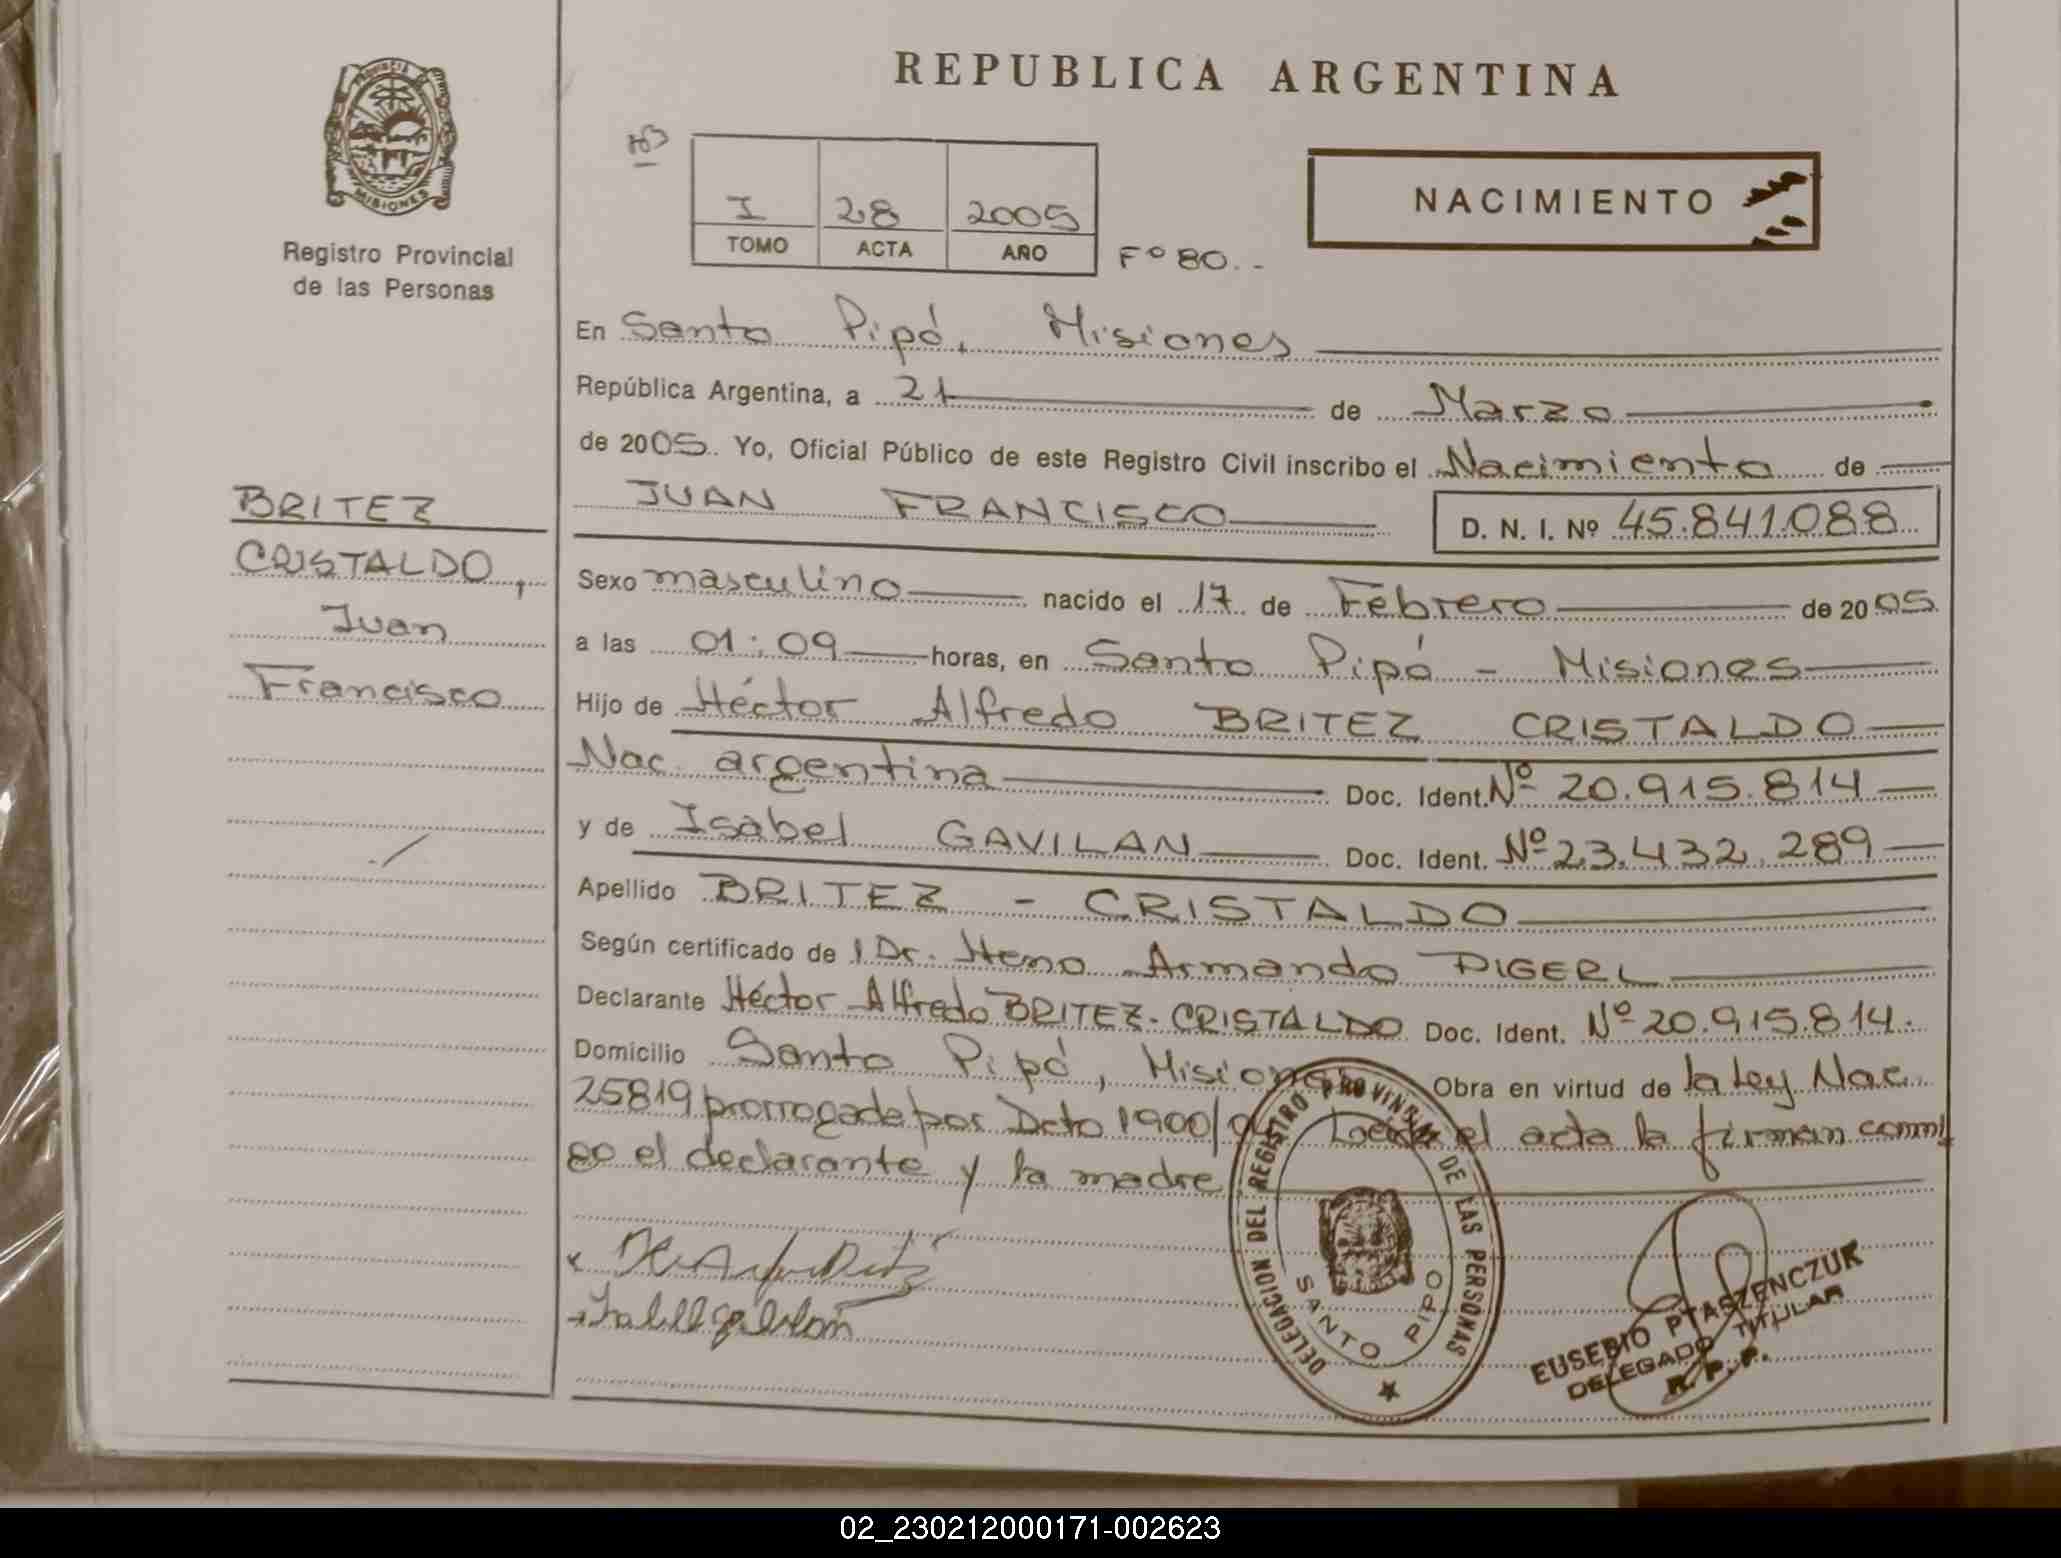 REPUBLICA ARGENTINA
PROVINCIA DE MISIONES
Registro Provincial
de las Personas
I 28 2005
TOMO ACTA AÑO
Fº 80.-
NACIMIENTO
En Santo Pipó, Misiones
República Argentina, a 21 de Marzo
de 2005. Yo, Oficial Público de este Registro Civil inscribo el Nacimiento de
JUAN FRANCISCO D. N. I. Nº 45.841.088
BRITEZ
CRISTALDO,
Juan
Francisco
Sexo masculino nacido el 17 de Febrero de 2005
a las 01:09 horas, en Santo Pipó - Misiones
Hijo de Héctor Alfredo BRITEZ CRISTALDO
Nac. argentina Doc. Ident. Nº 20.915.814
y de Isabel GAVILAN Doc. Ident. Nº 23.432.289
Apellido BRITEZ - CRISTALDO
Según certificado de l Dr. Heno Armando DIGERL
Declarante Héctor Alfredo BRITEZ-CRISTALDO Doc. Ident. Nº 20.915.814.
Domicilio Santo Pipó, Misiones Obra en virtud de la Ley Nac.
25819 prorrogada por Dcto 1900/ Leida el acta la firman conmi
go el declarante y la madre
DELEGACION DEL REGISTRO PROVINCIAL DE LAS PERSONAS
SANTO PIPO
EUSEBIO PTASZENCZUK
DELEGADO TITULAR
R. P. P.
02_230212000171-002623